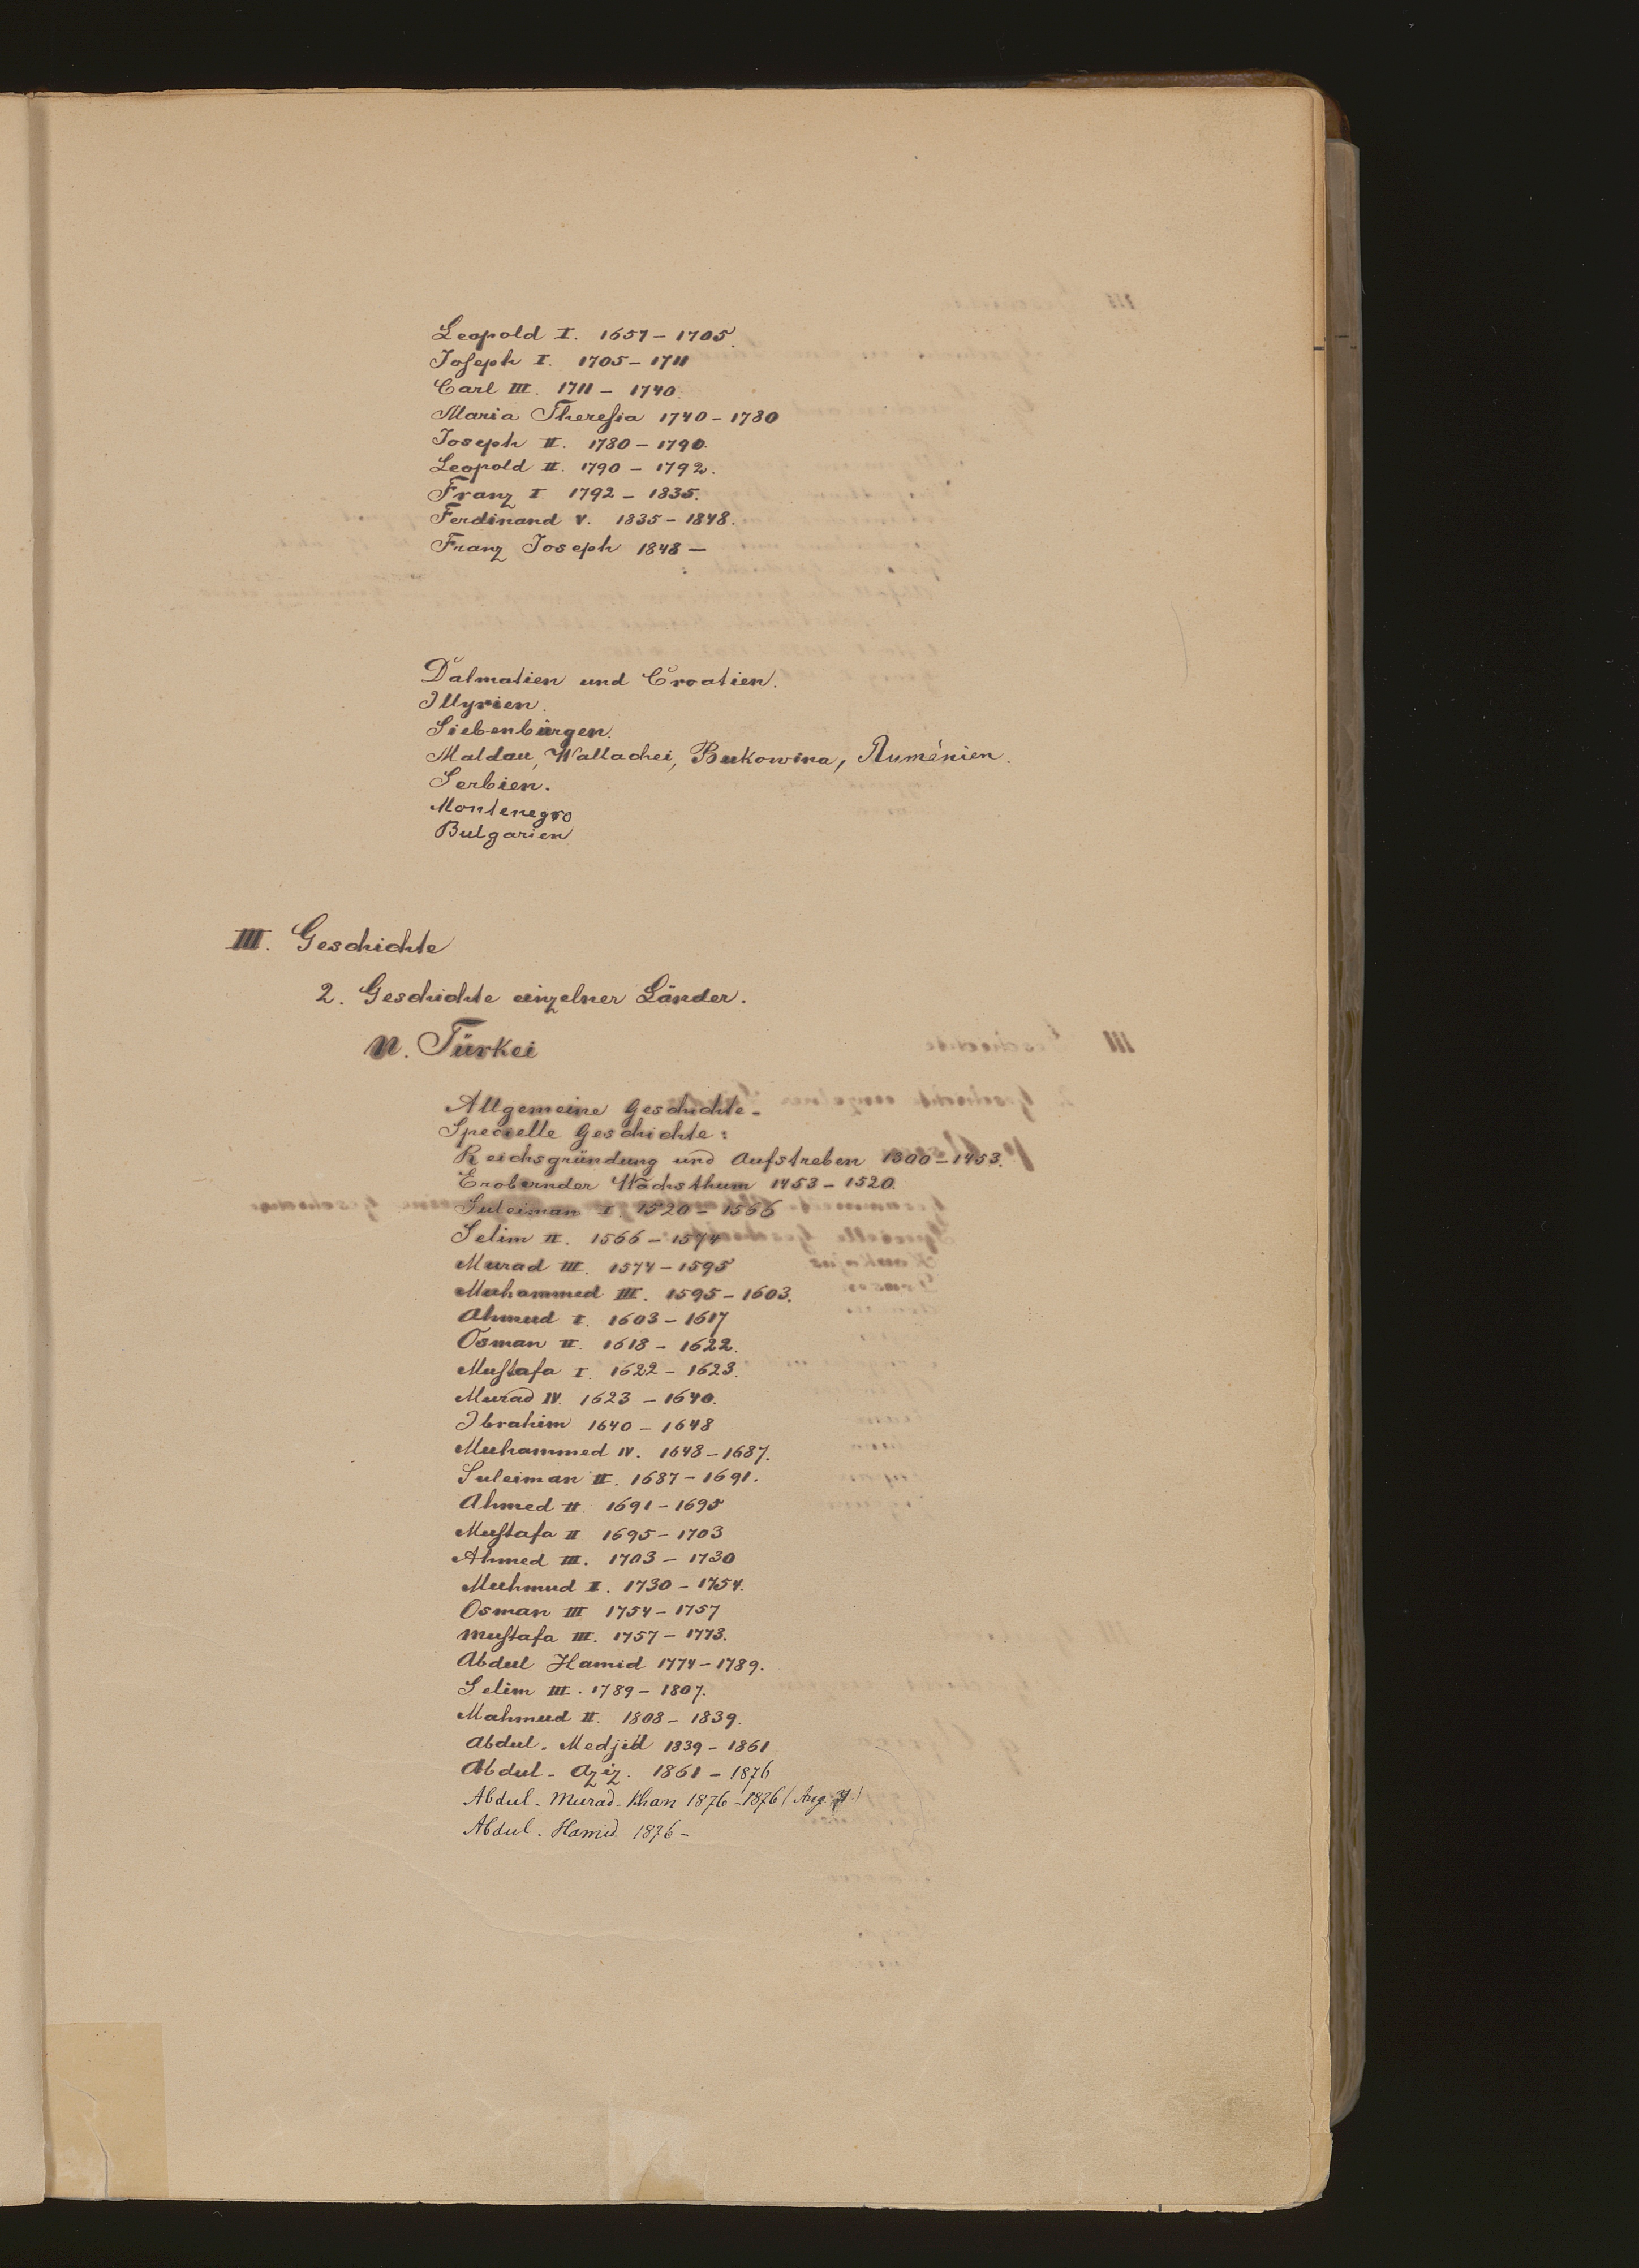 Leopold I. 1657 – 1705.
Joseph I. 1705 – 1711
Carl III. 1711 – 1740.
Maria Theresia 1740 – 1780
Joseph II. 1780 – 1790.
Leopold II. 1790 – 1792.
Franz I 1792 – 1835.
Ferdinand V. 1835 – 1848.
Franz Joseph 1848 –
Dalmatien und Croatien.
Illyrien.
Siebenbürgen.
Maldau, Wallachei, Bukowina, Ruménien.
Serbien.
Montenegro
Bulgarien
III. Geschichte
2. Geschichte einzelner Länder.
n. Türkei
Allgemeine Geschichte.
Specielle Geschichte:
Reichsgründung und Aufstreben 1300 – 1453.
Erobernder Wachsthum 1453 – 1520.
Suleiman I. 1520 – 1566
Selim II. 1566 – 1574
Murad III. 1574 – 1595
Muhammed III. 1595 – 1603.
Ahmed I. 1603 – 1617
Osman II. 1618 – 1622.
Mustafa I. 1622 – 1623.
Murad IV. 1623 – 1640.
Ibrahim 1640 – 1648
Muhammed IV. 1648 – 1687.
Suleiman II. 1687 – 1691.
Ahmed II. 1691 – 1695
Mustafa II 1695 – 1703
Ahmed III. 1703 – 1730
Muhmud I. 1730 – 1754.
Osman III 1754 – 1757
Mustafa III. 1757 – 1773.
Abdul Hamid 1774 – 1789.
Selim III. 1789 – 1807.
Mahmud II. 1808 – 1839.
Abdul - Medjid 1839 – 1861
Abdul - Aziz. 1861 – 1876
Abdul - Murad - Khan 1876 – 1876 (Aug. 31.)
Abdul - Hamid 1876 –